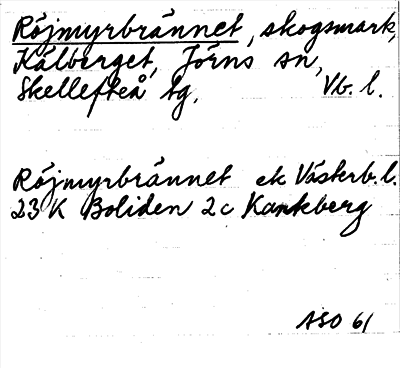 Röjmyrbrännet, skogsmark,
Kälberget, Jörns sn,
Skellefteå tg, Vb. l.
Röjmyrbrännet ek Västerb. l.
23 K Boliden 2c Kankberg
ASO 61